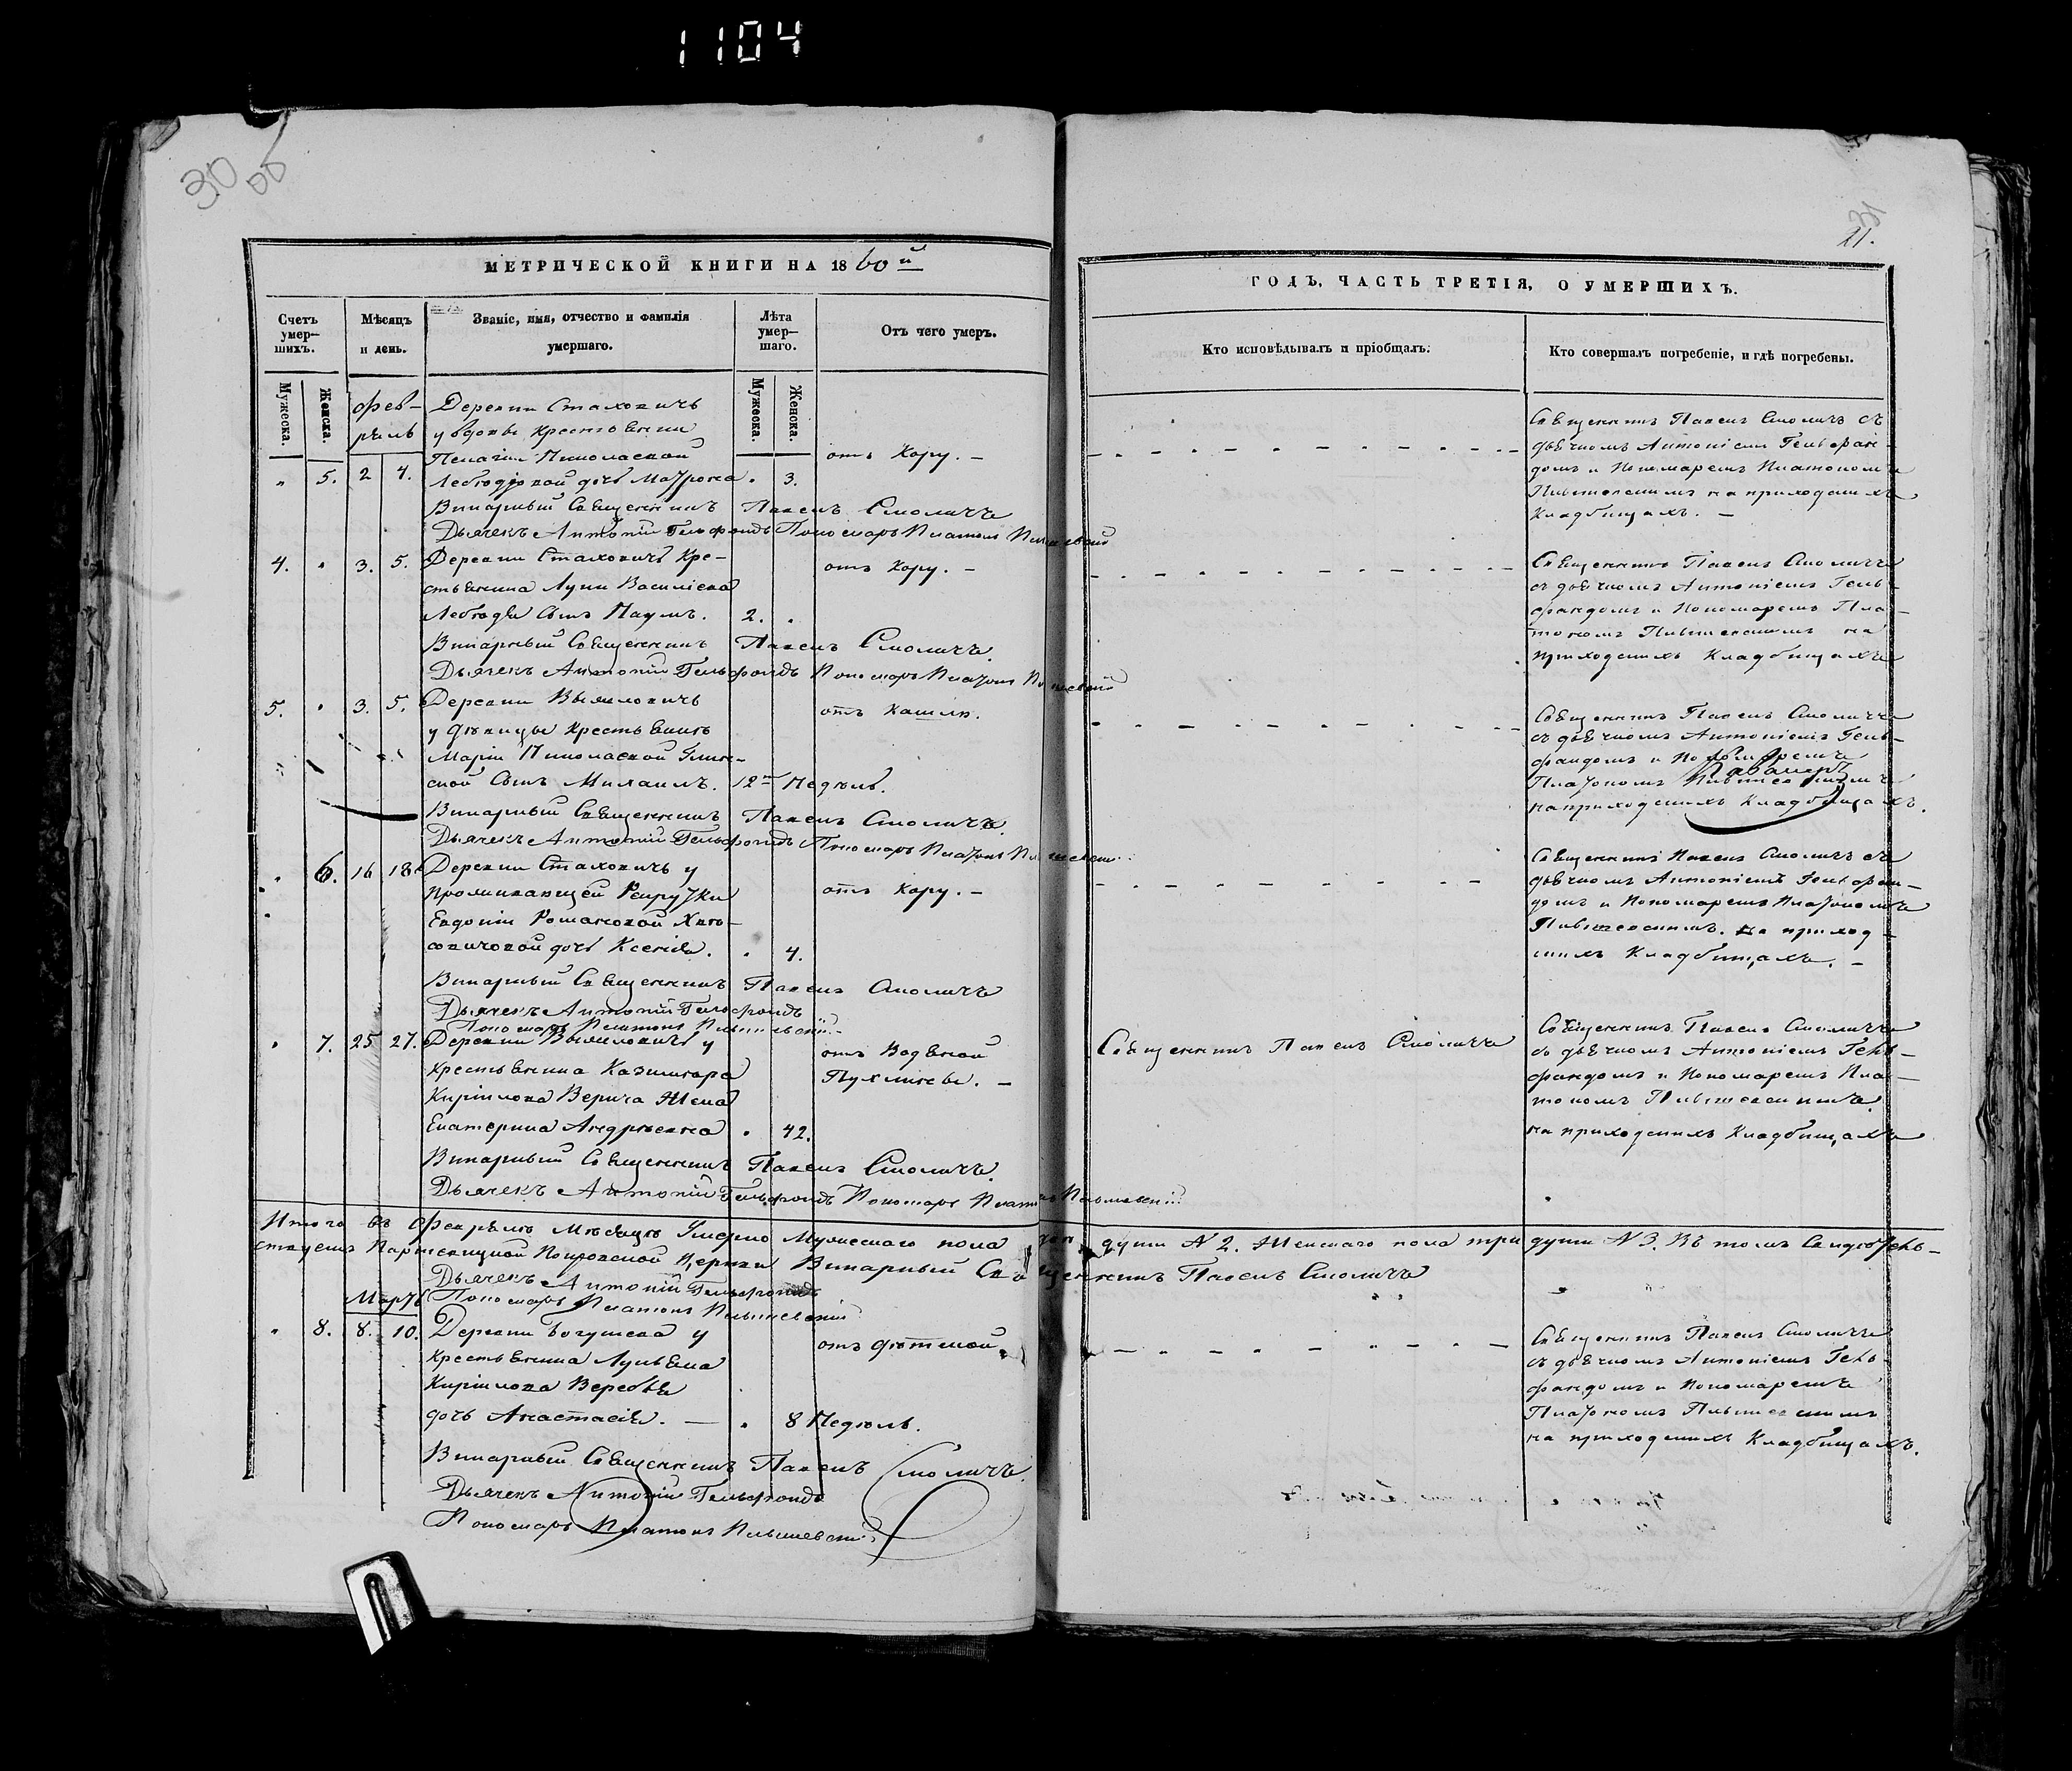 1104
30 об
31
21.
МЕТРИЧЕСКОЙ КНИГИ НА 1860й
ГОДЪ, ЧАСТЬ ТРЕТІЯ, О УМЕРШИХЪ.
Счетъ умер-шихъ.
Мѣсяцъ и день.
Званіе, имя, отчество и фамилія умершаго.
Лѣта умер-шаго.
Отъ чего умеръ.
Кто исповѣдывалъ и пріобщалъ.
Кто совершалъ погребеніе, и гдѣ погребены.
Мужеска.
Женска.
Мужеска.
Женска.
Фев-
раль
Деревни Стаховичъ
у вдовы Крестьянки
Пелагіи Николаевой
" 5. 2 4. Лебюдзовой дочь Матрона " 3.
отъ Кору. -
Священникъ Павелъ Смоличъ съ
дьячкомъ Антоніемъ Гельфан-
домъ и Пономаремъ Платономъ
на приходскихъ
Кладбищахъ. -
Викарный Священникъ Павелъ Смоличъ
Дьячекъ Антоній Гельфандъ Пономарь Платонъ
4. " 3. 5. Деревни Стаховичъ Кре-
стьянина Луки Василіева
Лебюди Сынъ Наумъ. 2. "
отъ Кору. -
Священникъ Павелъ Смоличъ
съ дьячкомъ Антоніемъ Гель-
фандомъ и Пономаремъ Пла-
тономъ на
приходскихъ Кладбищахъ
Викарный Священникъ Павелъ Смоличъ.
Дьячекъ Антоній Гельфандъ Пономарь Платонъ
5. " 3. 5. Деревни
у дѣвицы Крестьянки
Маріи Николаевой Глин-
ской Сынъ Михаилъ. 12ть Недѣль.
отъ Кашля.
Священникъ Павелъ Смоличъ
съ дьячкомъ Антоніемъ Гель-
фандомъ и Пономаремъ
Платономъ
на приходскихъ Кладбищахъ.
Викарный Священникъ Павелъ Смоличъ.
Дьячекъ Антоній Гельфандъ Пономарь Платонъ
" 6. 16 18. Деревни Стаховичъ у
проживающей Рекрутки
Евдокіи Романовой
дочь Ксенія. " 4.
отъ Кору. -
Священникъ Павелъ Смоличъ съ
дьячкомъ Антоніемъ Гельфан-
домъ и Пономаремъ Платономъ
на приход-
скихъ Кладбищахъ. -
Викарный Священникъ Павелъ Смоличъ
Дьячекъ Антоній Гельфандъ
Пономарь Платонъ
" 7. 25 27. Деревни у
Крестьянина Казимира
Кирилова Верича Жена
Екатерина Андреевна " 42.
отъ Водяной
Пухлины. -
Священникъ Павелъ Смоличъ
Священникъ Павелъ Смоличъ
съ дьячкомъ Антоніемъ Гель-
фандомъ и Пономаремъ Пла-
тономъ
на приходскихъ Кладбищахъ
Викарный Священникъ Павелъ Смоличъ.
Дьячекъ Антоній Гельфандъ Пономарь Платонъ
Итого въ Февралѣ Мѣсяцѣ Умерло Мужескаго пола души N 2. Женскаго пола три души N 3. Въ томъ Свидѣтель-
ствуемъ Покровской Церкви Викарный Священникъ Павелъ Смоличъ
Дьячекъ Антоній Гельфандъ
Пономарь Платонъ
Мартъ
" 8. 8. 10. Деревни Богушева у
Крестьянина Лукьяна
Кирилова Веребья
дочь Анастасія. — " 8 Недѣль.
отъ дѣтской.
Священникъ Павелъ Смоличъ
съ дьячкомъ Антоніемъ Гель-
фандомъ и Пономаремъ
Платономъ
на приходскихъ Кладбищахъ.
Викарный Священникъ Павелъ Смоличъ.
Дьячекъ Антоній Гельфандъ
Пономарь Платонъ